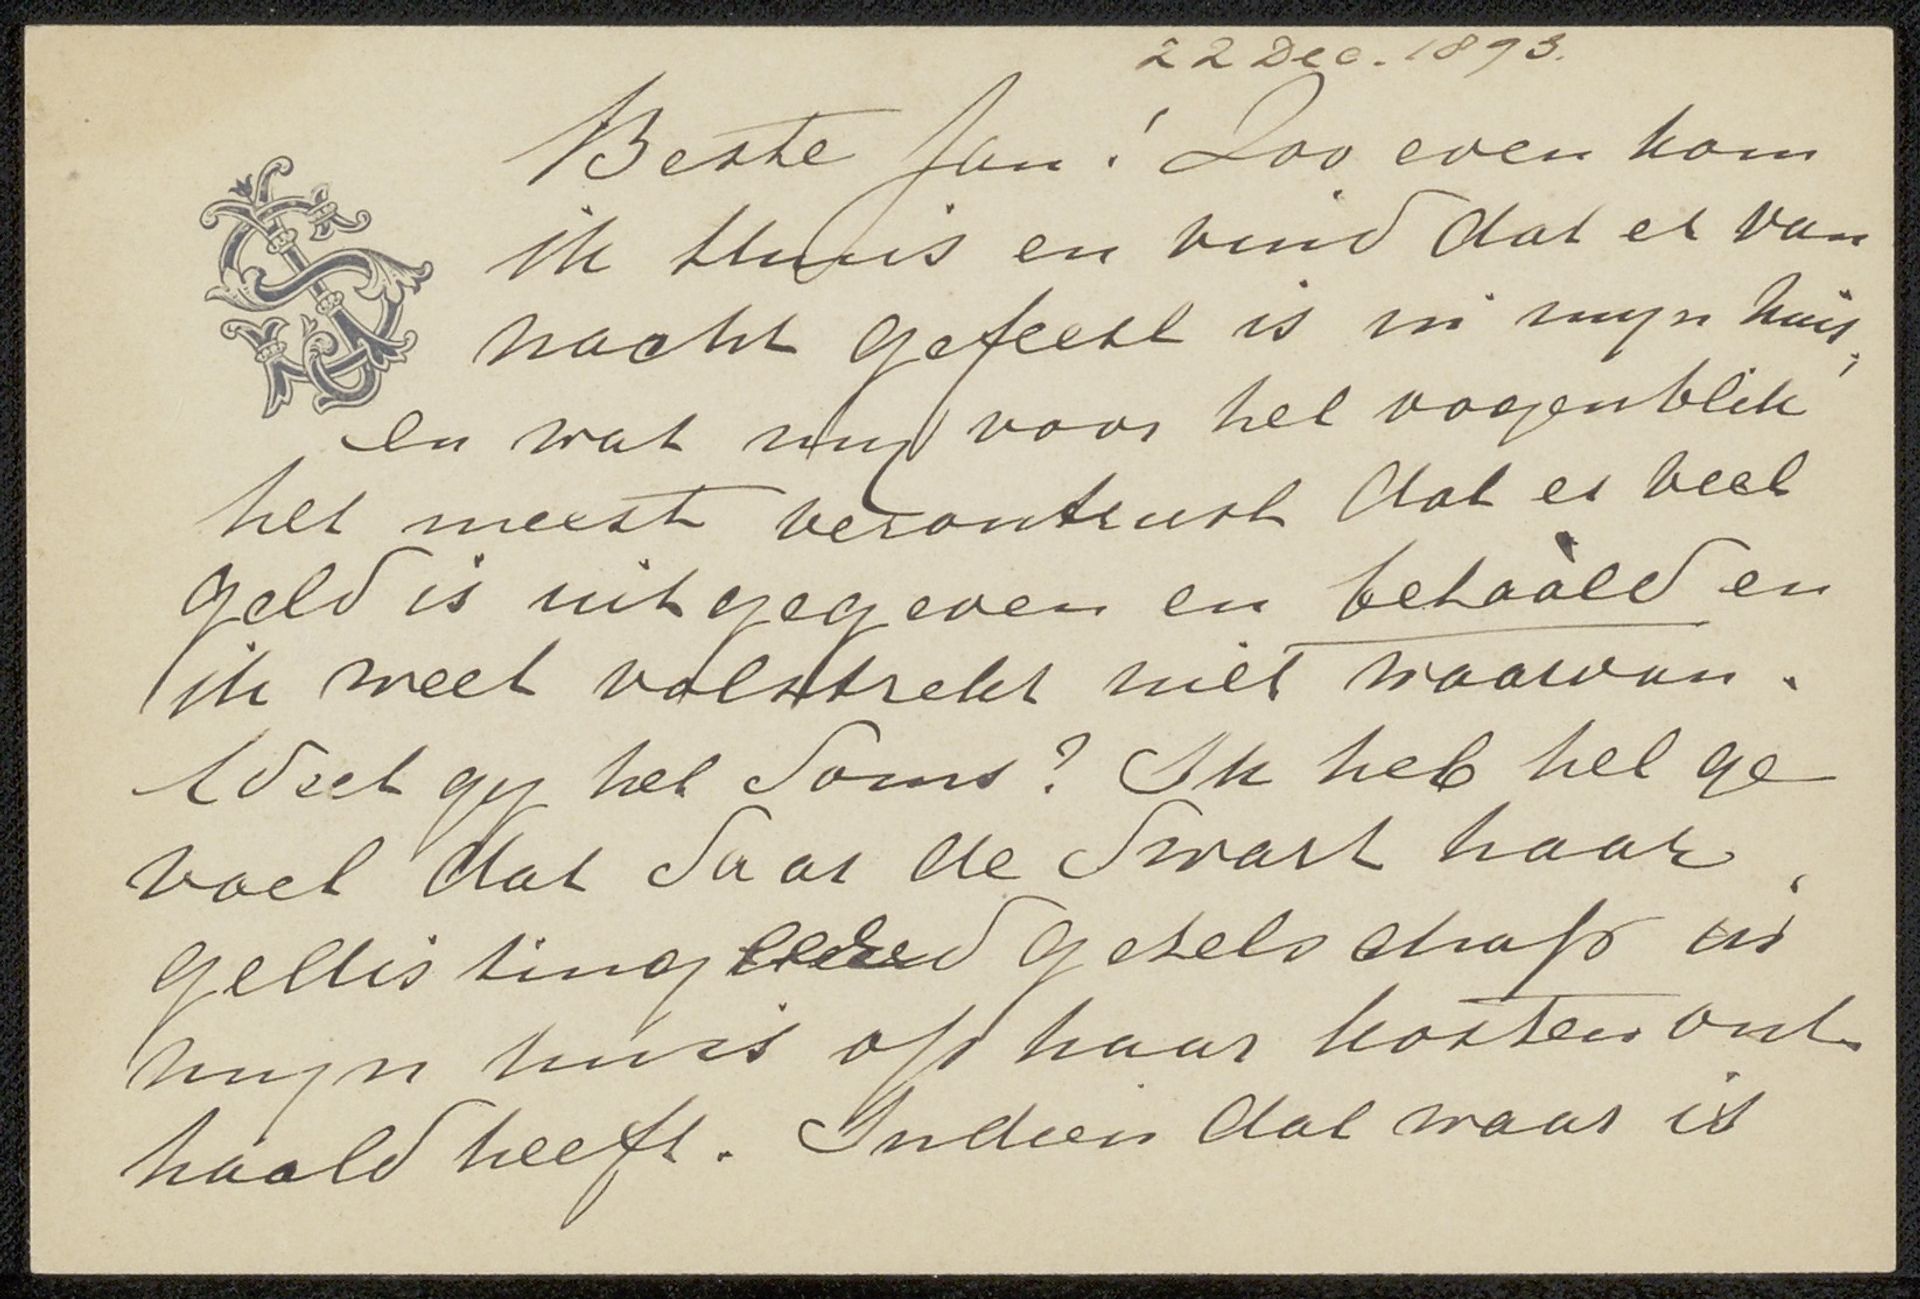 22 Dec. 1893.
Beste Jan! Zoo even kom
ik thuis en vind dat er van
nacht gefeest is in mijn huis,
en wat mij voor het oogenblik
het meest verontrust dat er veel
geld is uitgegeven en betaald en
ik weet volstrekt niet waarvan.
Weet gij het soms? Ik heb het ge
voel dat Saar de Swart haar
gezelschap in
mijn huis op haar kosten ont
haald heeft. Indien dat waar is